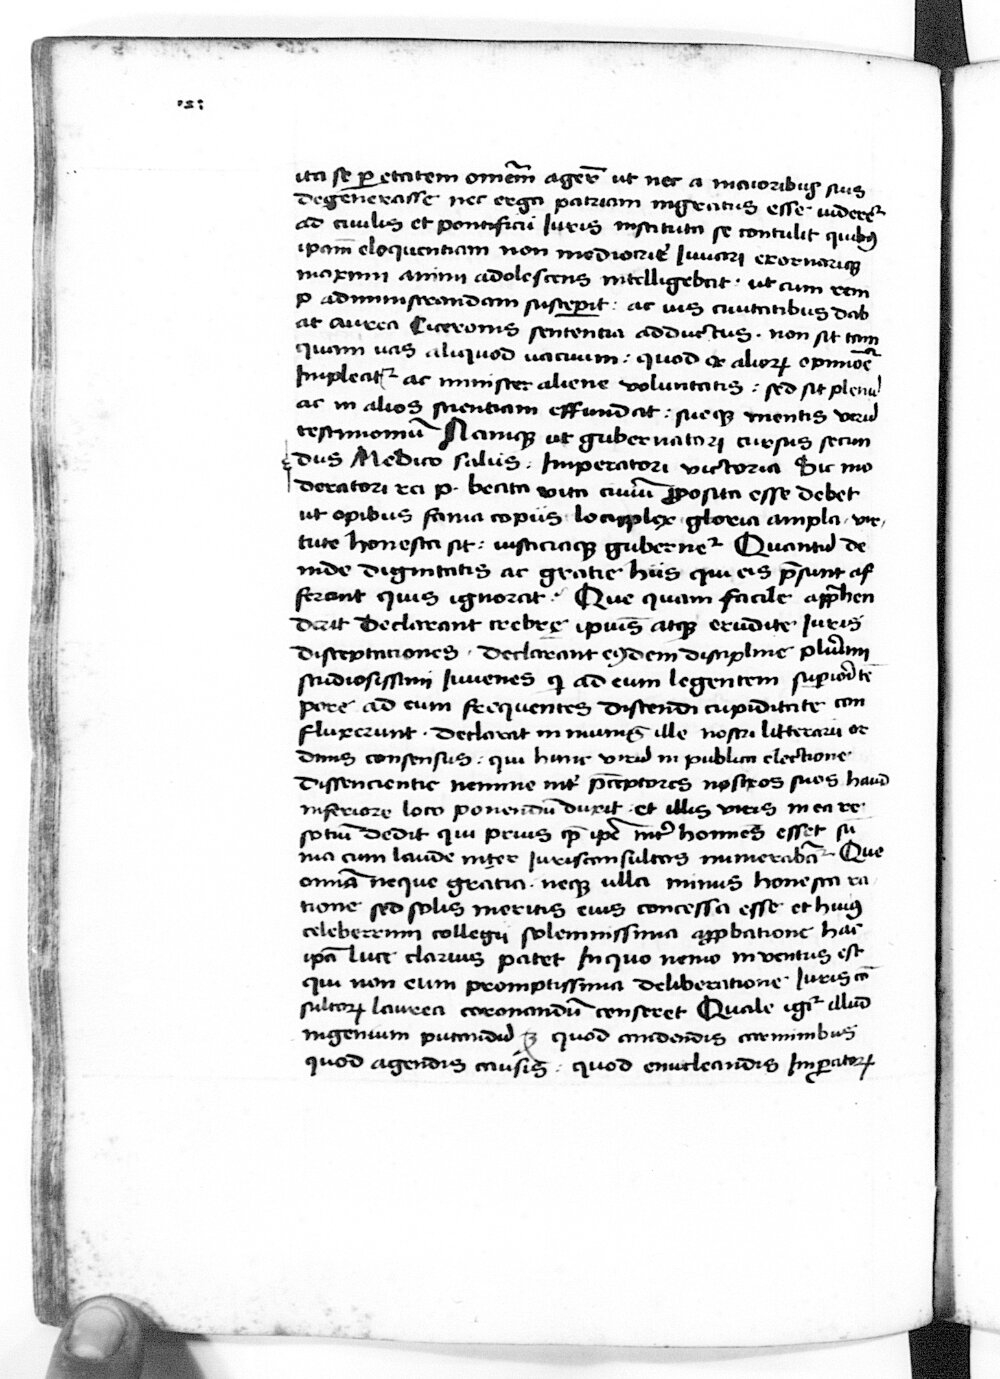 ita se p etatem omēm ager̄ ut nec a maioribus suis
degenerasse nec erga patriam ingratus esse uideret᷑
ad ciuilis et pontificii Iuris instituta se contulit quibꝰ
ipam̄ eloquentiam non mediocrit̉ Iuuari exornariqꝫ
maximi animi adolescens intelligebat · ut cum rem
p administrandam suscepit : ac uis ciuitatibus dab
at aurea Ciceronis sententia adductus · non sit tam
quam uas aliquod uacuum : quod ex alioꝝ opinōe᷑
Impleat᷑ ac minister aliene voluntatis : sed sit plenū
ac in alios scientiam effundat : sueqꝫ mentis verū
testimoniū Namqꝫ ut gubernatori cursus secun
dus Medico salus : Imperatori victoria Sic mo
deratori rei p · beata vita ciuiū ꝓposita esse debet
ut opibus fama copiis locuplex gloria ampla · vir
tute honesta sit : iusticiaqꝫ gubernet᷑ Quantū de
inde dignitatis ac gratie hiis qui eis p̄sunt af
ferant quis ignorat · Que quam facile app̄hen
darit declarant crebre ipius̄ atqꝫ erudite Iuris
disceptationes · declarant eiꝰdem discipline plurimi
studiosissimi Iuuenes q ad eum legentem supiori tē
pore ad eum frequentes discendi cupiditate con
fluxerunt · declarat in munis ille nostri litterarii or
dinis consensus : qui hunc virū in publica electione
dissencientie nemine int̉ p̄ceptores nostros suos haud
inferiore loco ponendū duxit : et illis viris mea re
sotiū dedit qui prius qꝫ ip̄e int̉ homines esset sū
ma cum laude inter Iurisconsultos numerabat᷑ Que
omia neque gratia · neqꝫ ulla minus honesta ra
tione sed solis meritis eius concessa esse et huiꝰ
celeberrimi collegii solemnissima app̄batione hac
ipa luce clarius patet In quo nemo inuentus est
qui non eum promptissima deliberatione Iuris cō
sultoꝝ laurea coronandū censeret Quale igit᷑ illud
ingenium putandū ꝫ quod candendis carminibus
quod agendis causis : quod enucleandis Impatoꝝ